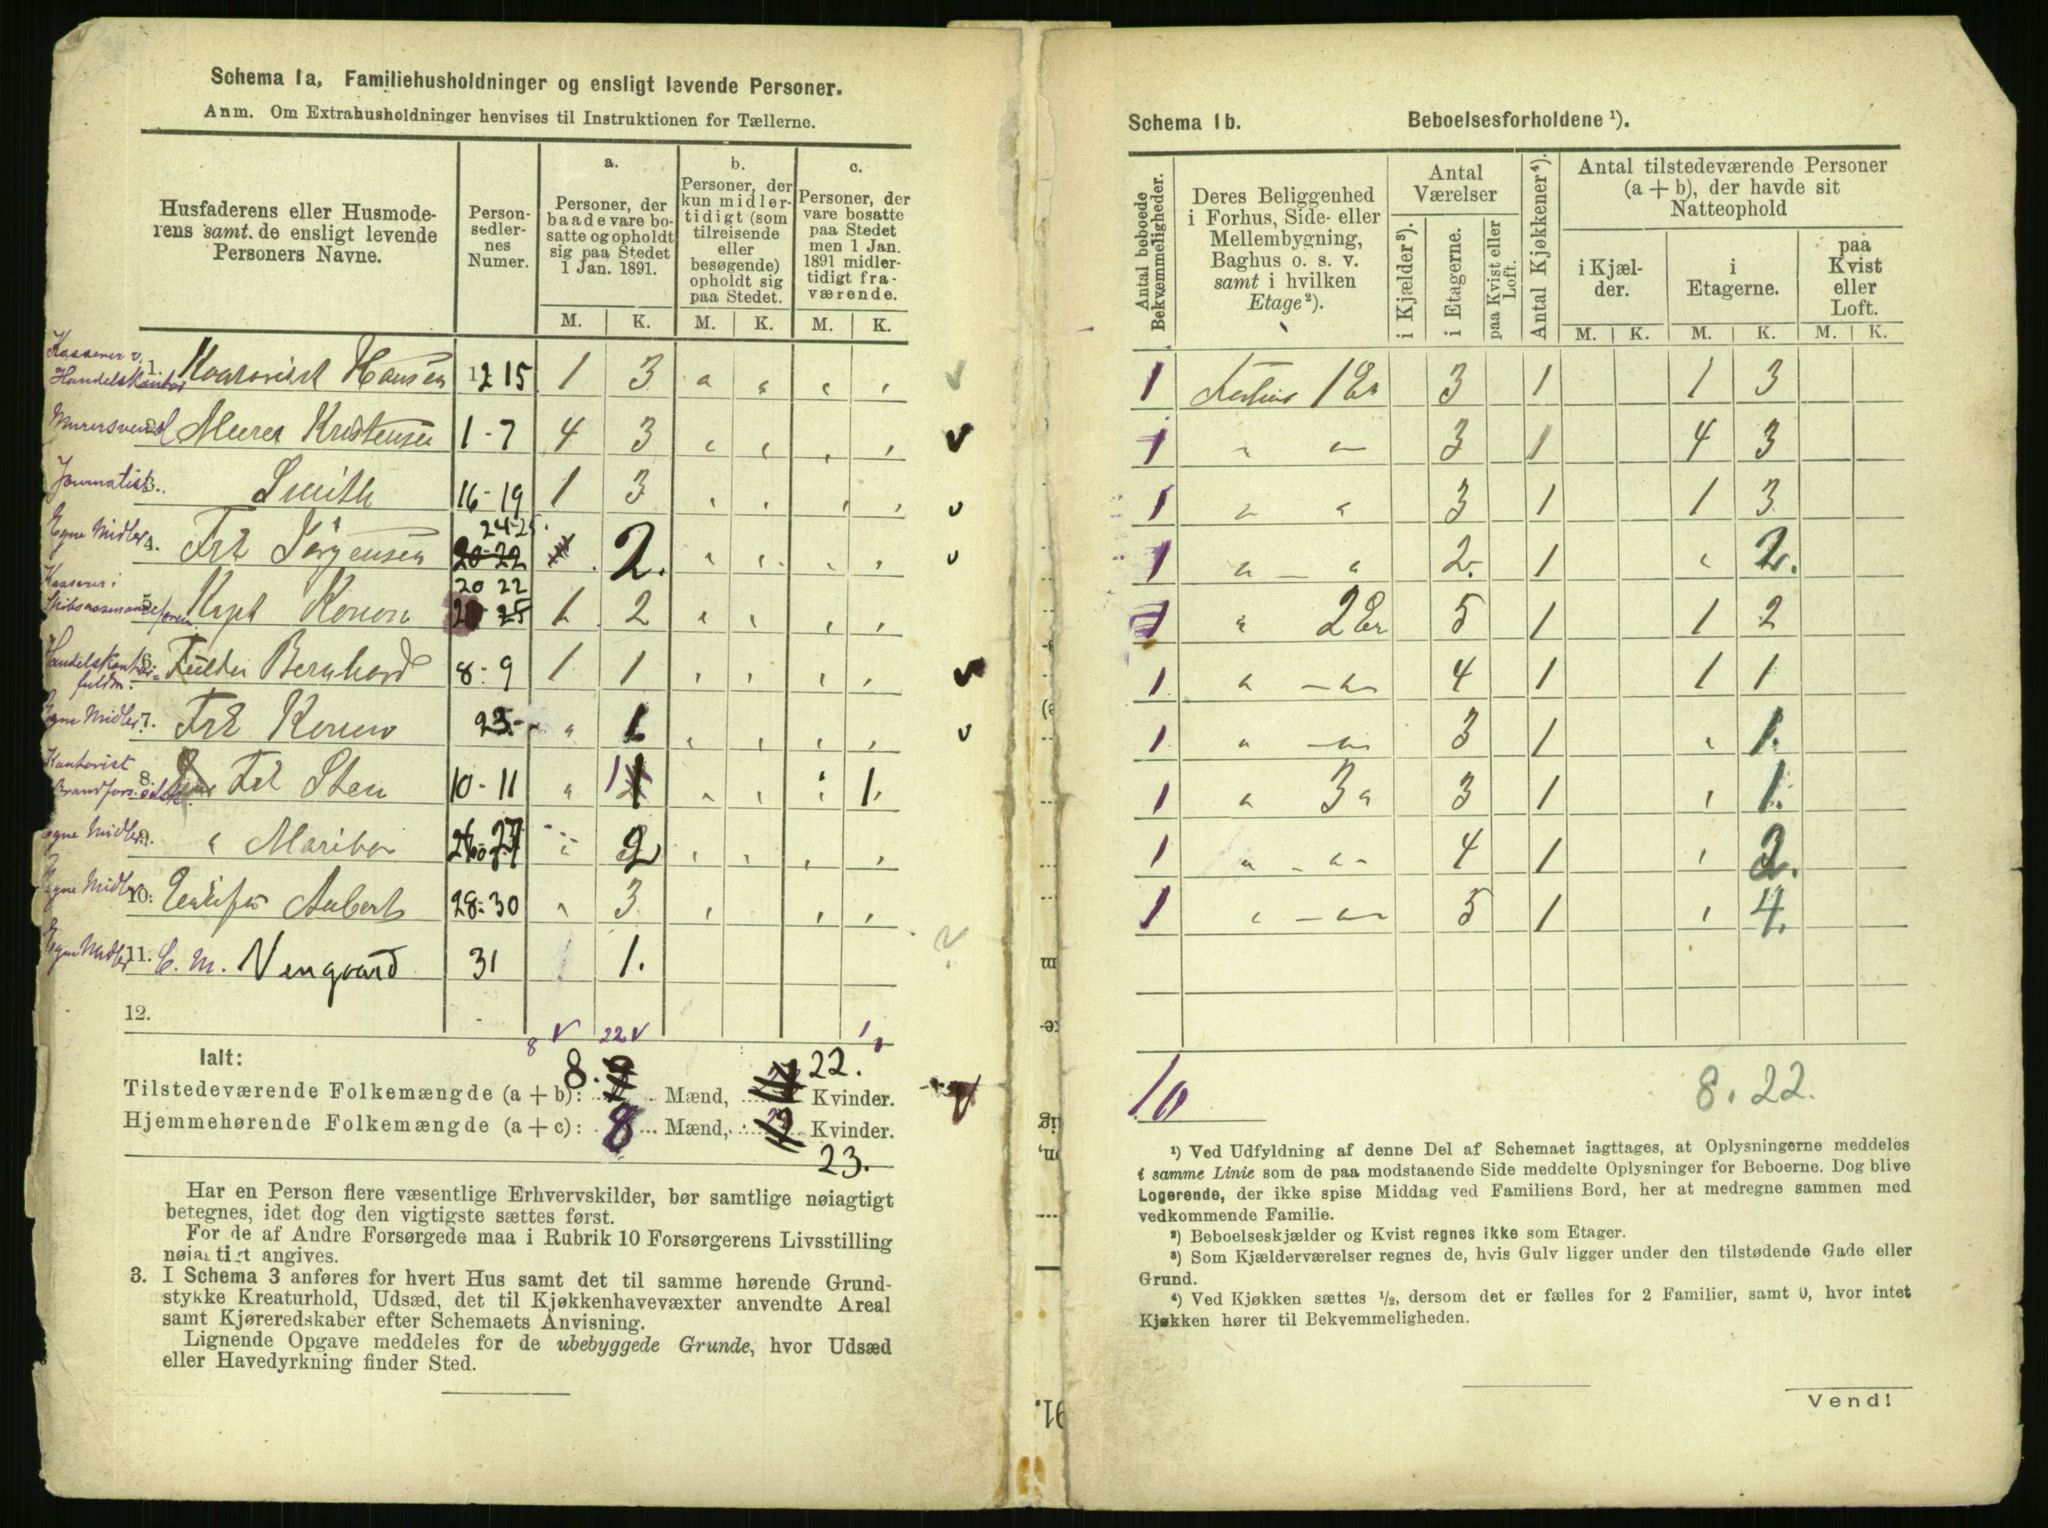 Schema 1a, Familiehusholdninger og ensligt levende Personer.
Anm. Om Extrahusholdninger henvises til Instruktionen for Tællerne.
Husfaderens eller Husmoderens samt de ensligt levende Personers Navne.
Personsedlernes Numer.
a.
Personer, der baade vare bosatte og opholdt sig paa Stedet 1 Jan. 1891.
b.
Personer, der kun midlertidigt (som tilreisende eller besøgende) opholdt sig paa Stedet.
c.
Personer, der vare bosatte paa Stedet men 1 Jan. 1891 midlertidigt fraværende.
M. K. M. K. M. K.
Kasserer v. Handelskontor 1. Hansen 12 15 1 3 " " " "
Murersvend 2. Murer Kristensen 1-7 4 3 " " " "
Journalist 3. Smith 16-19 1 3 " " " "
24-25.
Egne Midler 4. Frk Jørgensen 20-22 2. " " " "
Kasserer i 20 22
5. Kapt Konow 25 1 2 " " " "
Handelskontor- fuldm. 6. Bernhard 8-9 1 1 " " " "
Egne Midler 7. Frk Konow 23.- " 1 " " " "
Kontorist
8. Frk Sten 10-11 " 1 " " : 1.
Egne Midler 9. " Maribo 26-27 " 2 " " " "
Egne Midler 10. Enkefru Aubert 28-30 " 3 " " "
Egne Midler 11. C. M. Vengaard 31 1.
12.
8 V 22 V 1
Ialt:
8. 22.
Tilstedeværende Folkemængde (a + b): Mænd, Kvinder.
Hjemmehørende Folkemængde (a + c): 8 Mænd, Kvinder.
23.
Har en Person flere væsentlige Erhvervskilder, bør samtlige nøiagtigt
betegnes, idet dog den vigtigste sættes først.
For de af Andre Forsørgede maa i Rubrik 10 Forsørgerens Livsstilling
nøiagtigt angives.
3. I Schema 3 anføres for hvert Hus samt det til samme hørende Grund-
stykke Kreaturhold, Udsæd, det til Kjøkkenhavevæxter anvendte Areal
samt Kjøreredskaber efter Schemaets Anvisning.
Lignende Opgave meddeles for de ubebyggede Grunde, hvor Udsæd
eller Havedyrkning finder Sted.
Schema 1b. Beboelsesforholdene ¹).
Antal beboede Bekvæmmeligheder.
Deres Beliggenhed i Forhus, Side- eller Mellembygning, Baghus o. s. v. samt i hvilken Etage ²).
Antal Værelser
i Kjælder ³).
i Etagerne.
paa Kvist eller Loft.
Antal Kjøkkener ⁴).
Antal tilstedeværende Personer (a + b), der havde sit Natteophold
i Kjælder.
i Etagerne.
paa Kvist eller Loft.
M. K. M. K. M. K.
1 Forhus 1 Et 3 1 1 3
1 " " 3 1 4 3
1 " " 3 1 1 3
1 " " 2. 1 " 2.
1 " 2 Et 5 1 1 2
1 " " 4 1 1 1
1 " " 3 1 " 1.
1 " 3 " 3 1 " 1.
1 " " 4 1 " 2.
1 " " 5 1 " 4.
10 8. 22.
¹) Ved Udfyldning af denne Del af Schemaet iagttages, at Oplysningerne meddeles
i samme Linie som de paa modstaaende Side meddelte Oplysninger for Beboerne. Dog blive
Logerende, der ikke spise Middag ved Familiens Bord, her at medregne sammen med
vedkommende Familie.
²) Beboelseskjælder og Kvist regnes ikke som Etager.
³) Som Kjælderværelser regnes de, hvis Gulv ligger under den tilstødende Gade eller
Grund.
⁴) Ved Kjøkken sættes ½, dersom det er fælles for 2 Familier, samt 0, hvor intet
Kjøkken hører til Bekvemmeligheden.
Vend!